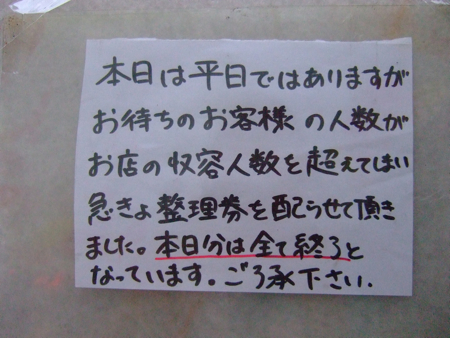 本日は平日ではありますが
お待ちのお客様の人数が
お店の収容人数を超えてしまい
急きょ整理券を配らせて頂き
ました。本日分は全て終了と
なっています。ご了承下さい.